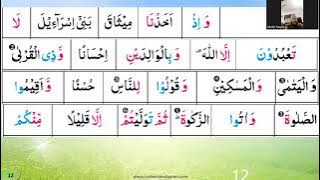 وَ اِذْ اَخَذْنَا مِيْثَاقَ بَنِيْۤ اِسْرَآءِيْلَ لَا
تَعْبُدُوْنَ اِلَّا اللّٰهَ وَ بِالْوَالِدَيْنِ اِحْسَانًا وَّ ذِي الْقُرْبٰى
وَ الْيَتٰمٰى وَ الْمَسٰكِيْنِ وَ قُوْلُوْا لِلنَّاسِ حُسْنًا وَّ اَقِيْمُوا
الصَّلٰوةَ وَ اٰتُوا الزَّكٰوةَ ثُمَّ تَوَلَّيْتُمْ اِلَّا قَلِيْلًا مِّنْكُمْ
12 12